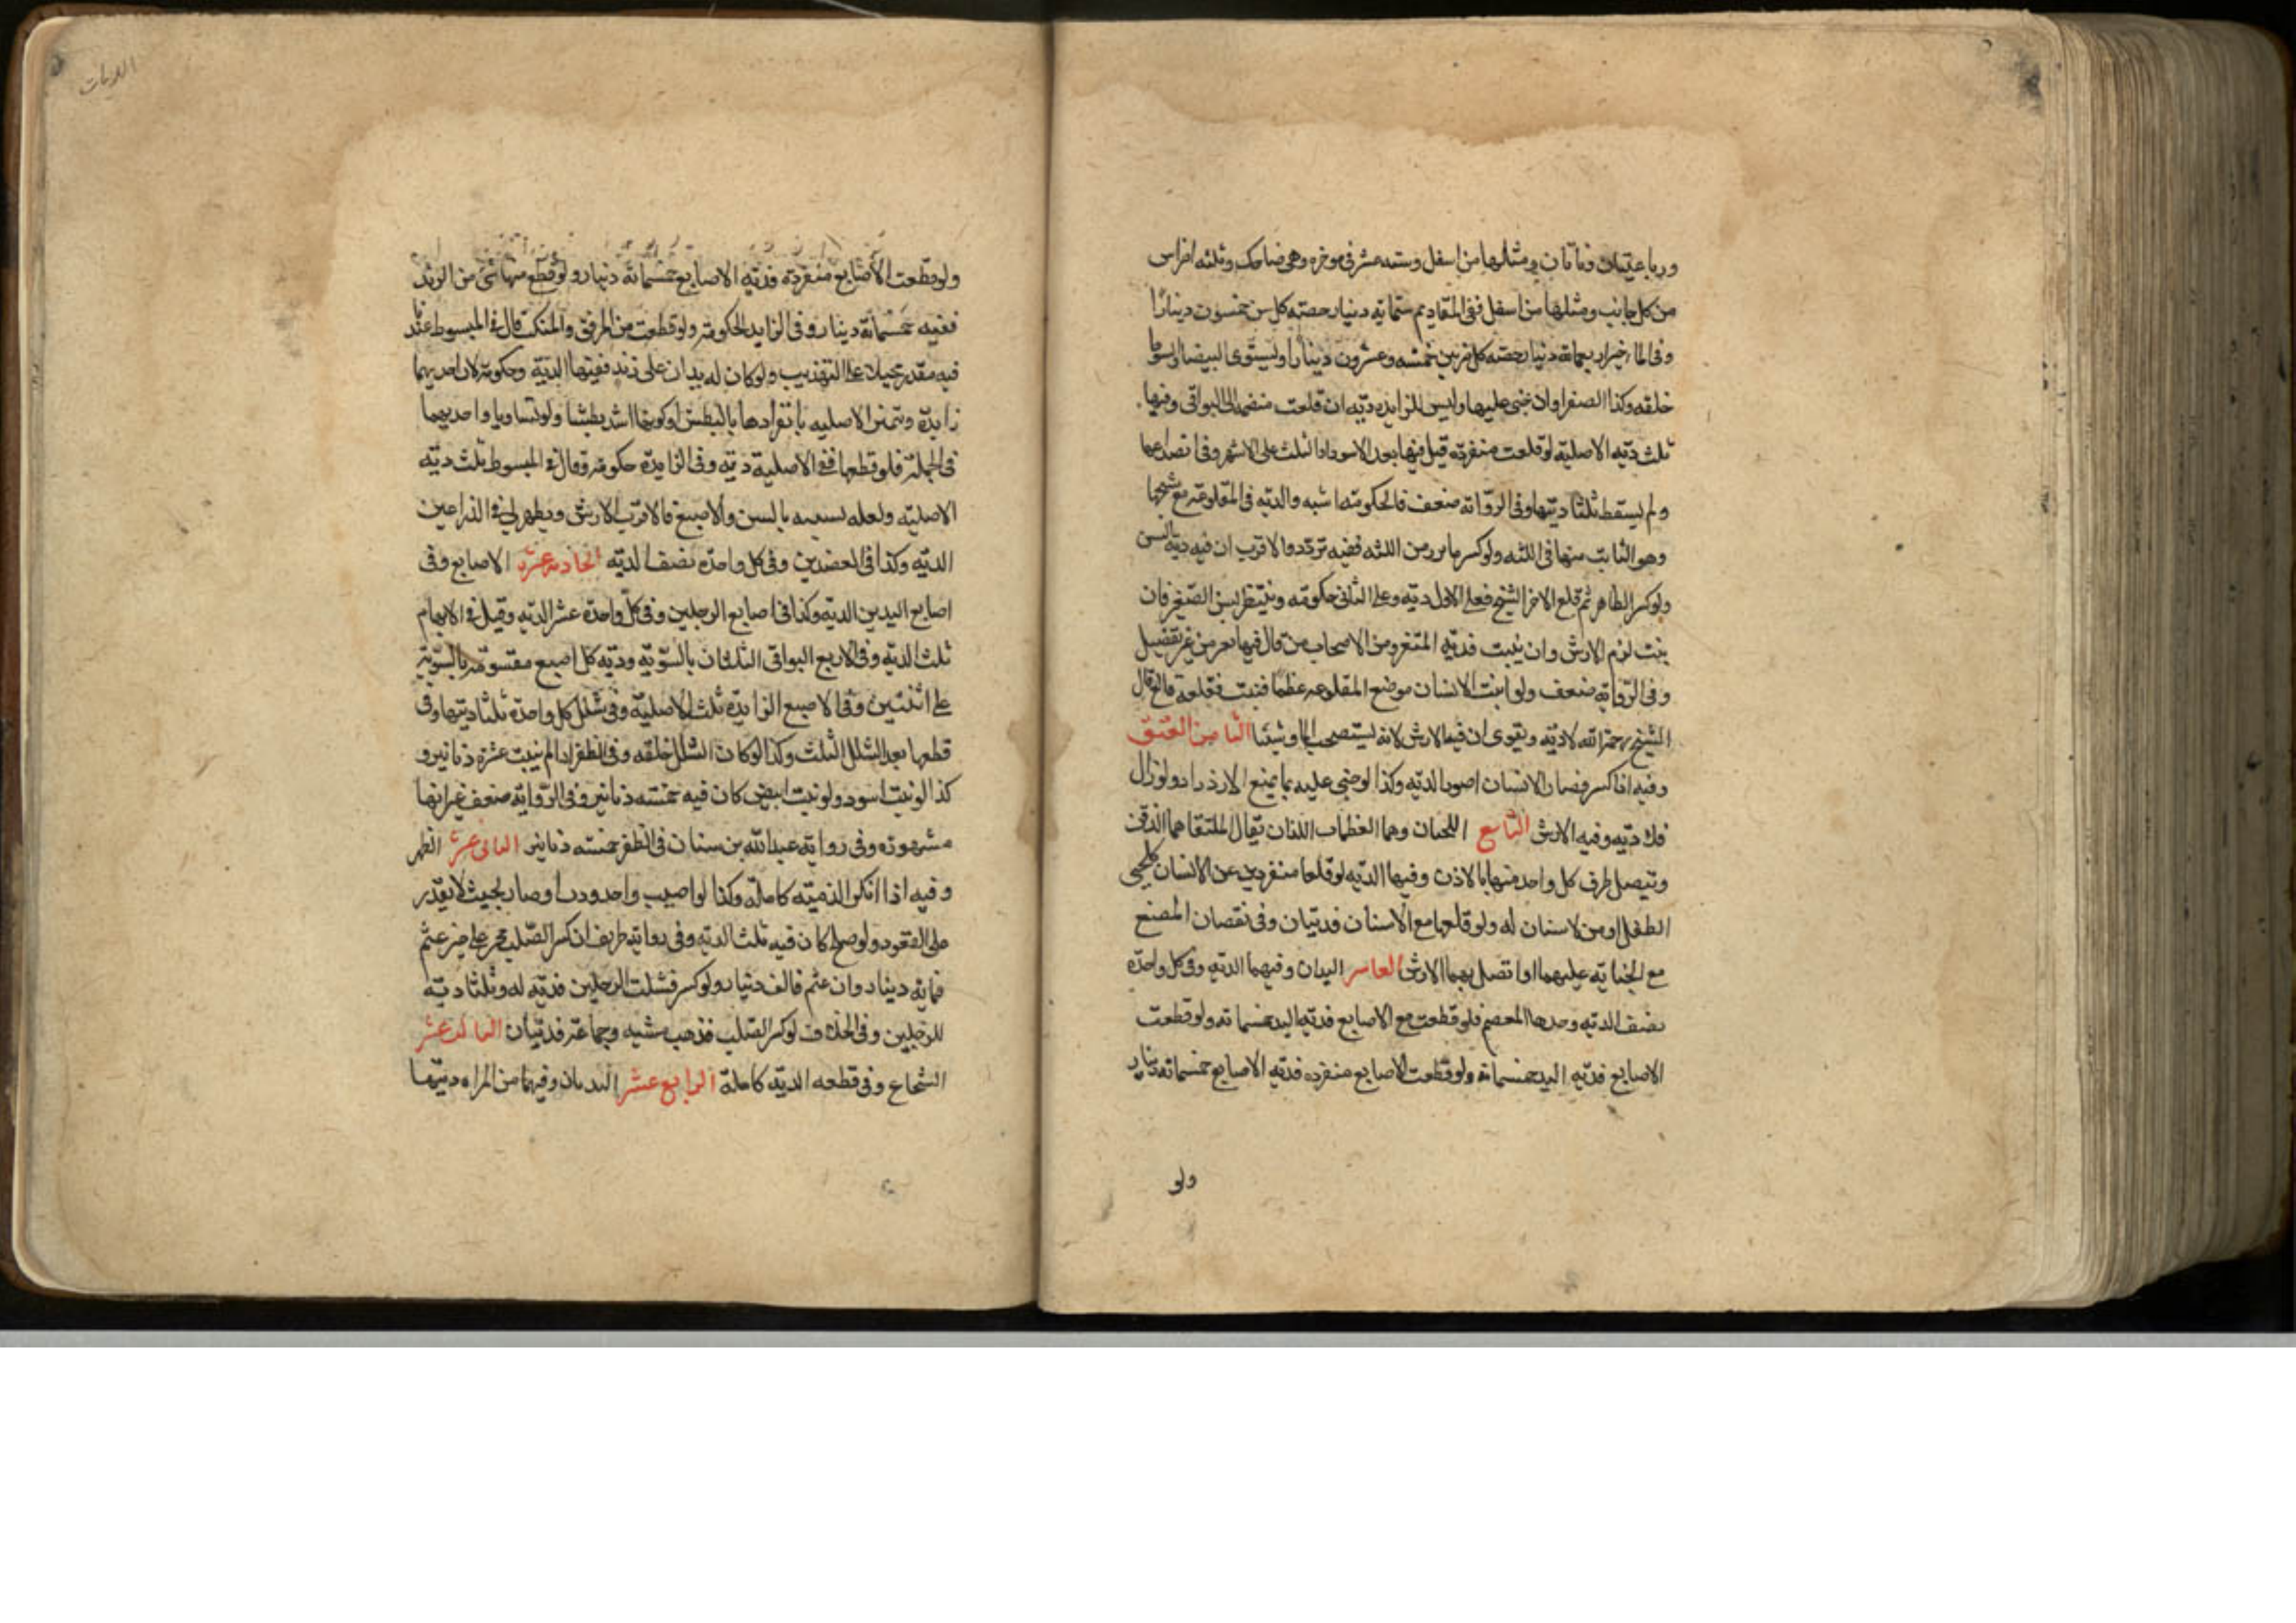 ورباعيتان ونابان ومثلها من اسفل وستة عشر في موخره وهي ضاحك وثلثه اضراس
من كل جانب ومثلها من اسفل ففي المقاديم ستماية دينار حصة كل سن خمسون دينارا
وفي الماخير اربعماية دينار حصة كل ضرس خمسه وعشرون دينارا وليستوي البيضا والسودا
خلقه وكذا الصفرا وان جنى عليها وليس للزايده ديه ان قلعت منضمه الى البواقي وفيها
ثلث ديه الاصليه لو قلعت منفرده قيل فيها بعد الاسوداد الثلث على الاشهر وفي انصداعها
ولم يسقط ثلثا ديتها وفي الرواية ضعف فالحكومة اشبه والديه في المقلوعة مع سنخها
وهو الثابت منها في اللثه ولو كسر ما برز من اللثه ففيه تردد والاقرب ان فيه دية السن
ولو كسر الظاهر ثم قلع الاخر السنخ فعلى الاول ديه وعلى الثاني حكومه وينتظر بسن الصغير فان
نبت لزم الارش وان لم ينبت فديه المثغر ومن الاصحاب من قال فيها بعير من غير تفصيل
وفي الرواية ضعف ولو انبت الانسان موضع المقلوعه عظما فنبت فقلعه قالع قال
الشيخ رحمه الله لا ديه ويقوى ان فيه الارش لانه يستصحب الما وشينا الثامن العنق
وفيه اذا كسر فصار الانسان اصور الديه وكذا لو جني عليه بما يمنع الازدراد ولو زال
فلا ديه وفيه الارش التاسع اللحيان وهما العظمان اللذان يقال لملتقاهما الذقن
ويتصل طرف كل واحد منها بالاذن وفيها الديه لو قلعا منفردين عن الاسنان كلحيي
الطفل او من لا اسنان له ولو قلعها مع الاسنان فديتان وفي نقصان المضغ
مع الجناية عليهما او تصلبهما الارش العاشر اليدان وفيهما الديه وفي كل واحدة
نصف الديه وحدها المعصم فلو قطعت مع الاصابع فديه اليد خمسماية ولو قطعت
الاصابع فديه اليد خمسماية ولو قطعت الاصابع منفرده فديه الاصابع خمسماية دينار
ولو
الديات
ولو قطعت الاصابع منفردة فدية الاصابع خمسماية دينار ولو قطع معها شي من الزند
ففيه خمسماية دينار وفي الزايد الحكومة ولو قطعت من المرفق والمنكب قال في المبسوط عندنا
فيه مقدر محيلا على التهذيب ولو كان له يدان على زند ففيهما الدية وحكومة لان احديهما
زايدة وتتميز الاصليه بانفرادها بالبطش او كونها اشد بطشا ولو تساويا واحديهما
في الجملة فلو قطعها ففي الاصلية دية وفي الزايدة حكومة وقال في المبسوط ثلث دية
الاصلية ولعله تشبيه بالسن والاصبع فالاقرب الارش ويظهر لي في الذراعين
الدية وكذا في العضدين وفي كل واحدة نصف الدية الحادي عشر الاصابع وفي
اصابع اليدين الدية وكذا في اصابع الرجلين وفي كل واحدة عشر الدية وقيل في الابهام
ثلث الدية وفي الاربع البواقي الثلثان بالسوية ودية كل اصبع مقسومة بالسوية
على اثنتين وفي الاصبع الزايدة ثلث الاصلية وفي شلل كل واحدة ثلثا ديتها وفي
قطعها بعد الشلل الثلث وكذا لو كان الشلل خلقه وفي الظفر اذا لم ينبت عشرة دنانير و
كذا لو نبت اسود ولو نبت ابيض كان فيه خمسة دنانير وفي الرواية ضعف غير انها
مشهورة وفي رواية عبدالله بن سنان في الظفر خمسة دنانير الثاني عشر الظهر
وفيه اذا انكسر الدية كاملة وكذا لو اصيب واحدودب او صار بحيث لا يقدر
على القعود ولو صلح كان فيه ثلث الدية وفي رواية ظريف ان كسر الصلب فجبر على غير عثم
فماية دينار وان عثم فالف دينار ولو كسر فشلت الرجلين فدية له وثلثا دية
للرجلين وفي الخلاف لو كسر الصلب فذهب مشيه وجماعه فديتان الثالث عشر
النخاع وفي قطعه الدية كاملة الرابع عشر الثديان وفيهما من المراة ديتها